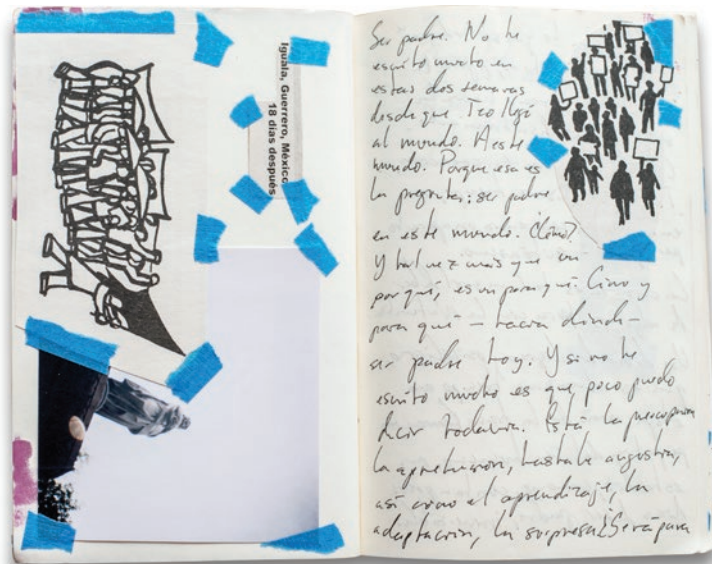 Iguala, Guerrero, México
18 días después
Ser padre. No he
escrito mucho en
estas dos semanas
desde que Teo llegó
al mundo. A este
mundo. Porque esa es
la pregunta: ser padre
en este mundo. ¿Cómo?
Y tal vez más que un
por qué, es un para qué. Cómo y
para qué – hacia dónde –
ser padre hoy. Y si no he
escrito mucho es que poco puedo
decir todavía. Está la preocupación,
la aprehensión, hasta la angustia,
así como el aprendizaje, la
adaptación, la sorpresa. ¿Será para